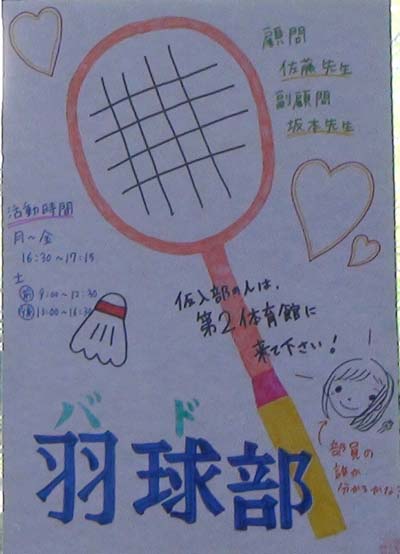 顧問
佐藤先生
副顧問
坂本先生
活動時間
月〜金
16:30〜17:15
土
前 9:00〜12:30
後 13:00〜16:30
仮入部の人は、
第2体育館に
来て下さい!
バド
羽球部
部員の
誰か
分かるかな?